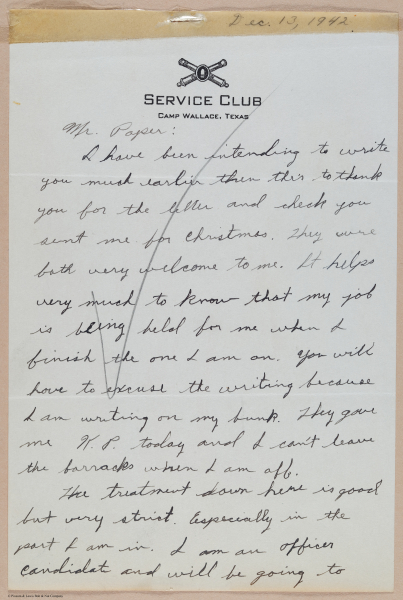 Dec. 13, 1942
SERVICE CLUB
CAMP WALLACE, TEXAS
Mr. Paper:
I have been intending to write
you much earlier then this to thank
you for the letter and check you
sent me for Christmas. They were
both very welcome to me. It helps
very much to know that my job
is being held for me when I
finish the one I am on. You will
have to excuse the writing because
I am writing on my bunk. They gave
me K.P. today and I can't leave
the barracks when I am off.
The treatment down here is good
but very strict. Especially in the
part I am in. I am an officer
candidate and will be going to